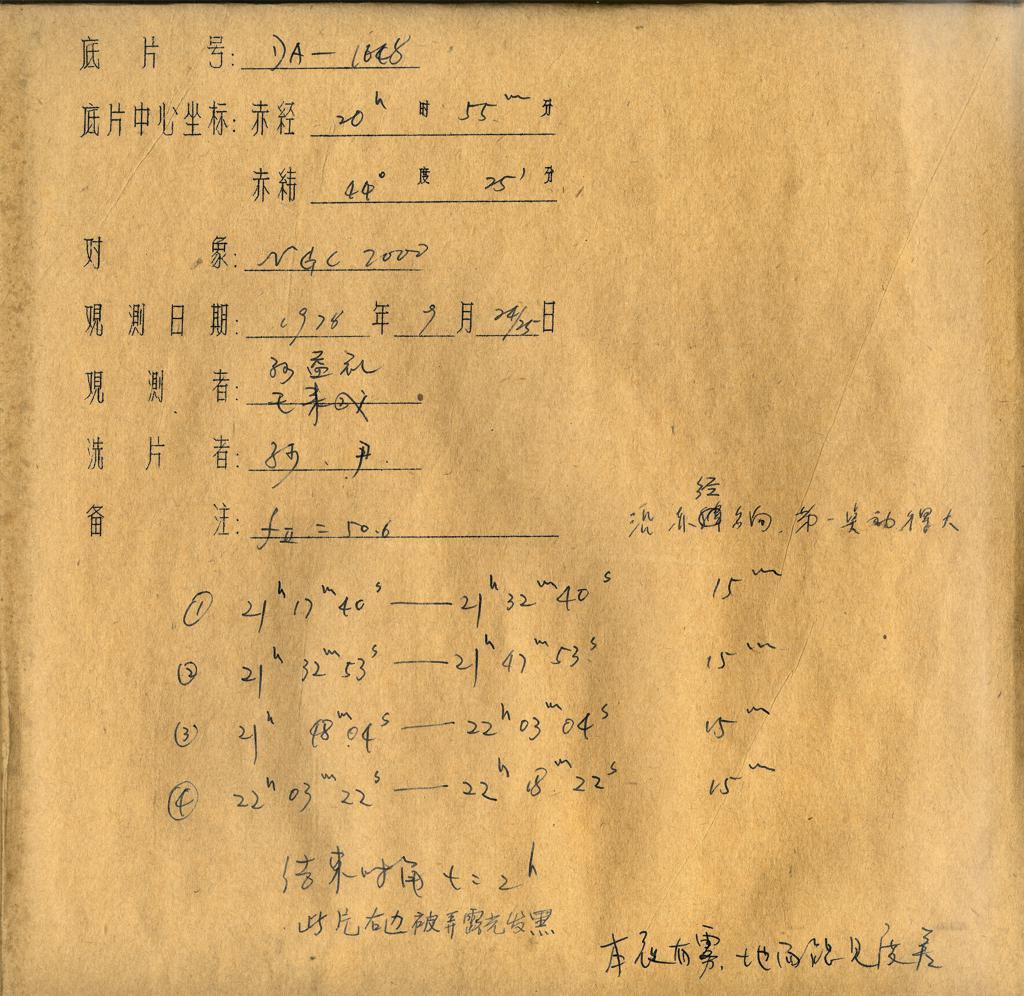 底片号: DA—1648
底片中心坐标: 赤经 20ʰ 时 55ᵐ 分
赤纬 44° 度 25′ 分
对象: NGC 7000
观测日期: 1978 年 9 月 24/25 日
孙益礼
观测者:
洗片者: 孙. 尹.
备注: fⅡ = 50.6
经
沿赤纬方向, 第一次动得大
① 21ʰ 17ᵐ 40ˢ — 21ʰ 32ᵐ 40ˢ 15ᵐ
② 21ʰ 32ᵐ 53ˢ — 21ʰ 47ᵐ 53ˢ 15ᵐ
③ 21ʰ 48ᵐ 04ˢ — 22ʰ 03ᵐ 04ˢ 15ᵐ
④ 22ʰ 03ᵐ 22ˢ — 22ʰ 18ᵐ 22ˢ 15ᵐ
结束时角 t = 2ʰ
此片右边被弄露光发黑
本夜有雾, 地面能见度差